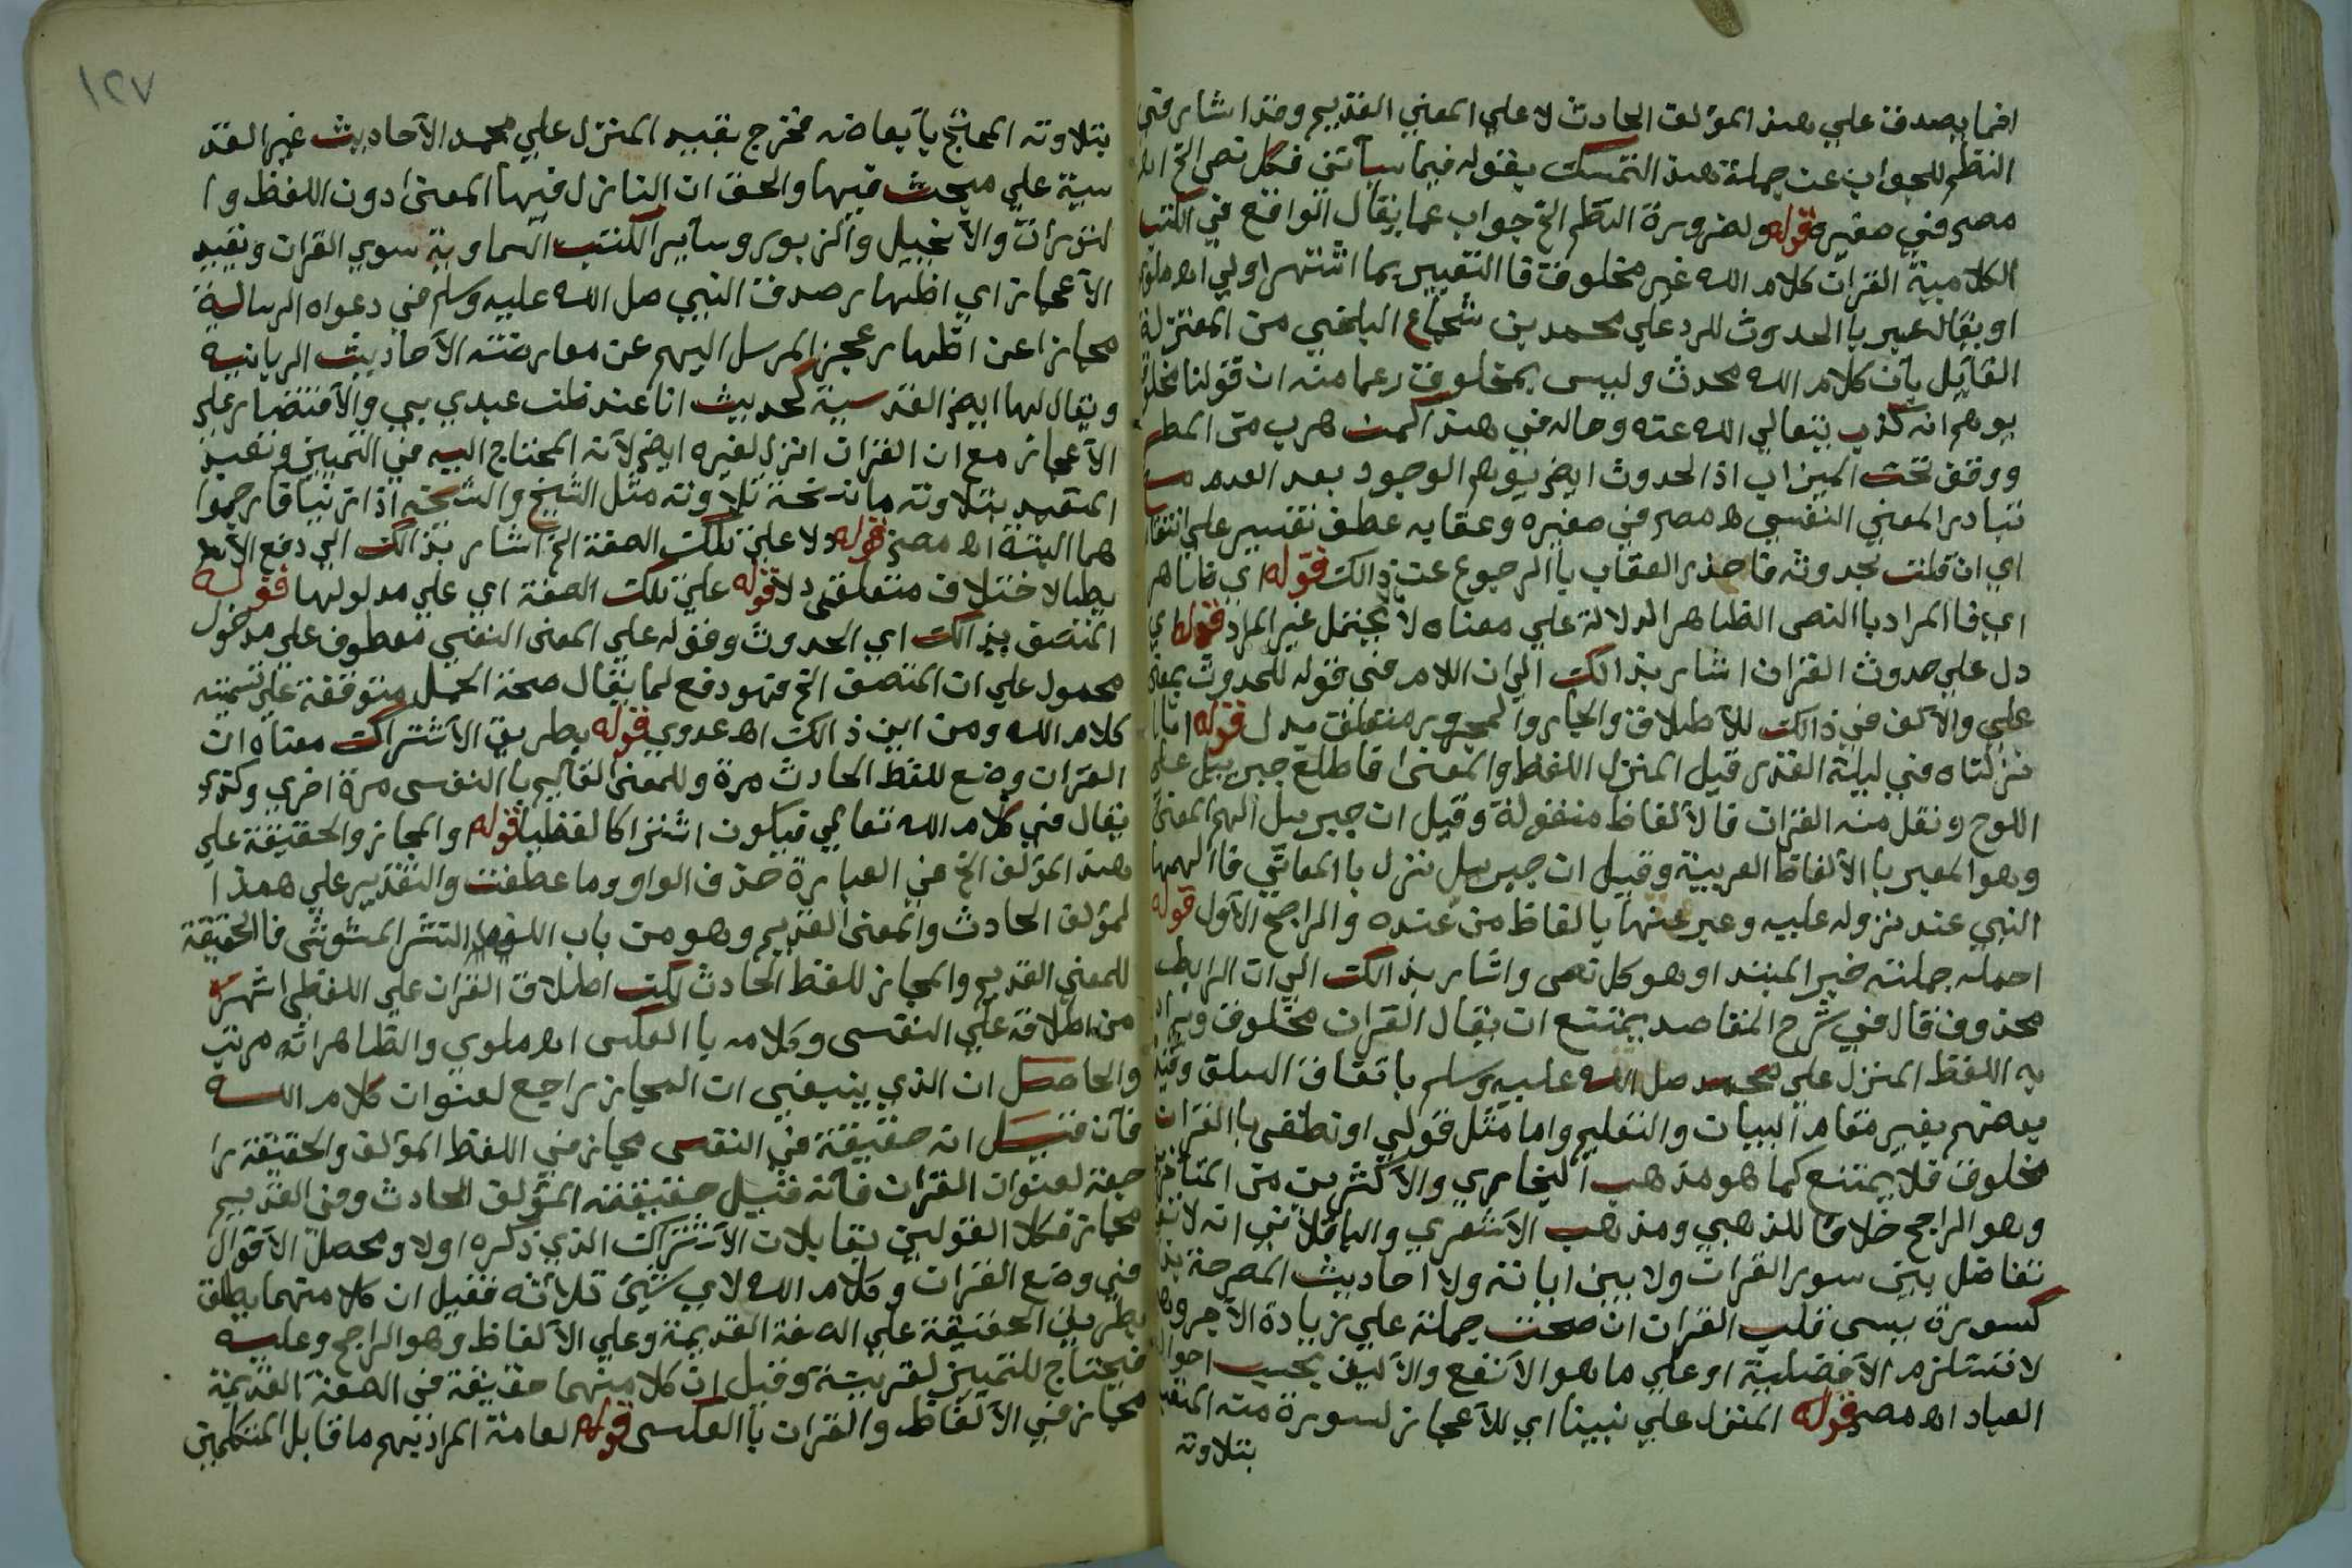 انما يصدق علي هذا المؤلف الحادث لا علي المعني القديم وقد اشار في
النظم للجواب عن جملة هذا التمسك بقوله فيما سيأتي فكل نص الخ اه
مصر في صغيره قوله ولضرورة النظم الخ جواب عما يقال الواقع في الكتب
الكلامية القران كلام الله غير مخلوق فا التعبير بما اشتهر اولي اه ملوي
او يقال عبر با الحدوث للرد علي محمد بن شجاع البلخي من المعتزلة
القآيل بأن كلام الله محدث وليس بمخلوق زعما منه ان قولنا مخلوق
يوهم انه كذب يتعالي الله عنه وحاله في هذا كمن هرب من المطر
ووقف تحت الميزاب اذ الحدوث ايضا يوهم الوجود بعد العدم مع
تبادر المعني النفسي اه مصر في صغيره وعقابه عطف تفسير علي انتقا
اي ان قلت بحدوثه فاحذر العقاب با الرجوع عن ذالك قوله اي ظاهر
اي فا المراد با النص الظاهر الدلالة علي معناه لا يحتمل غير المراد قوله اي
دل علي حدوث القران اشار بذالك الي ان اللام في قوله للحدوث بمعني
علي والآلف في ذالك للآطلاق والجار والمجرور متعلق بدل قوله انا
نزلناه في ليلة القدر قيل المنزل اللفظ والمعنى فاطلع جبريل علي
اللوح ونقل منه القران فا لآلفاظ منقولة وقيل ان جبريل الهم المعني
وهو المعبر با الآلفاظ العربية وقيل ان جبريل نزل با المعاني فا الهمها
النبي عند نزوله عليه وعبر عنها بالفاظ من عنده والراجح الآول قوله
احمله جملته خبر المبتدا وهو كل نص واشار بذالك الي ان الرابط
محذوف قال في شرح المقاصد يمتنع ان يقال القران مخلوق ويراد
به اللفظ المنزل علي محمد صل الله عليه وسلم با تفاق السلف وقيد
بعضهم بغير مقام البيان والتعليم واما مثل قولي او نطقي با القران
مخلوق فلا يمتنع كما هو مذهب البخاري والآكثرين من المتآخرين
وهو الراجح خلافا للذهبي ومذهب الآشعري والباقلآني انه لا
تفاضل بين سور القران ولا بين اياته ولا احاديث المصرحة بذ
كسورة يس قلب القران ان صحت جملة علي زيادة الآجر وهو
لا تستلزم الآفضلية او علي ما هو الآنفع والآليق بحسب احوال
العباد اه مصر قوله المنزل علي نبينا اي للآعجاز لسورة منه المتعبد
بتلاوته
بتلاوته المحانج بآبعاضه فخرج بقيد المنزل علي محمد الآحاديث غير القد
سية علي مبحث فيها والحق ان النازل فيها المعنى دون اللفظ وا
لتوراة والآنجيل والزبور وسآير الكتب السماوية سوي القران وبقيد
الآعجاز اي اظهار صدق النبي صل الله عليه وسلم في دعواه الرسالة
مجازا عن اظهار عجز المرسل اليهم عن معارضته الآحاديث الربانية
ويقال لها ايضا القدسية كحديث انا عند ظن عبدي بي والآقتضار علي
الآعجاز مع ان القران انزل لغيره ايضا لآنه المحتاج اليه في التمييز وبقيد
المتعبد بتلاوته ما نسخت تلاوته مثل الشيخ والشيخه اذا زنيا فارجموا
هما البتة اه مصر قوله دلا علي تلك الصفة الخ اشار بذالك الي دفع الآيطا
بطا لاختلاف متعلقي دلا قوله علي تلك الصفة اي علي مدلولها قوله
المتصف بذالك اي الحدوث وقوله علي المعنى النفسي معطوف علي مدخول
محمول علي ان المتصف الخ فهو دفع لما يقال صحة الحمل متوقفة علي تسميته
كلام الله ومن اين ذالك اه عدوي قوله بطريق الآشتراك معناه ان
القران وضع للفظ الحادث مرة وللمعنى القآيم با النفس مرة اخري وكذا
يقال في كلام الله تعالي فيكون اشتراكا لفظيا قوله والمجاز والحقيقة علي
هذا المؤلف الخ في العبارة حذف الواو وما عطفت والتقدير علي هذا ا
لمؤلف الحادث والمعنى القديم وهو من باب اللف والنشر المشوش فا الحقيقة
للمعني القديم والمجاز للفظ الحادث لكن اطلاق القران علي اللفظي اشهر
من اطلاقه علي النفسي وكلامه با العكس اه ملوي والظاهر انه مرتب
والحاصل ان الذي ينبغي ان المجاز راجع لعنوان كلام الله
فآنه قيل انه حقيقة في النفسي مجاز في اللفظ المؤلف والحقيقة را
جعة لعنوان القران فآنه قيل حقيقته المؤلف الحادث وفي القديم
مجاز فكلا القولين يقابلان الآشتراك الذي ذكره اولا ومحصل الآقوال
في وضع القران وكلام الله لاي شيئ ثلاثه فقيل ان كلا منهما يطلق
بطريق الحقيقة علي الصفة القديمة وعلي الآلفاظ وهو الراجح وعليه
فيحتاج للتمييز لقرينة وقيل ان كلا منهما حقيقة في الصفة القديمة
مجاز في الآلفاظ والقران با العكس قوله لعامة المراد بهم ما قابل المتكلمين
١٢٧